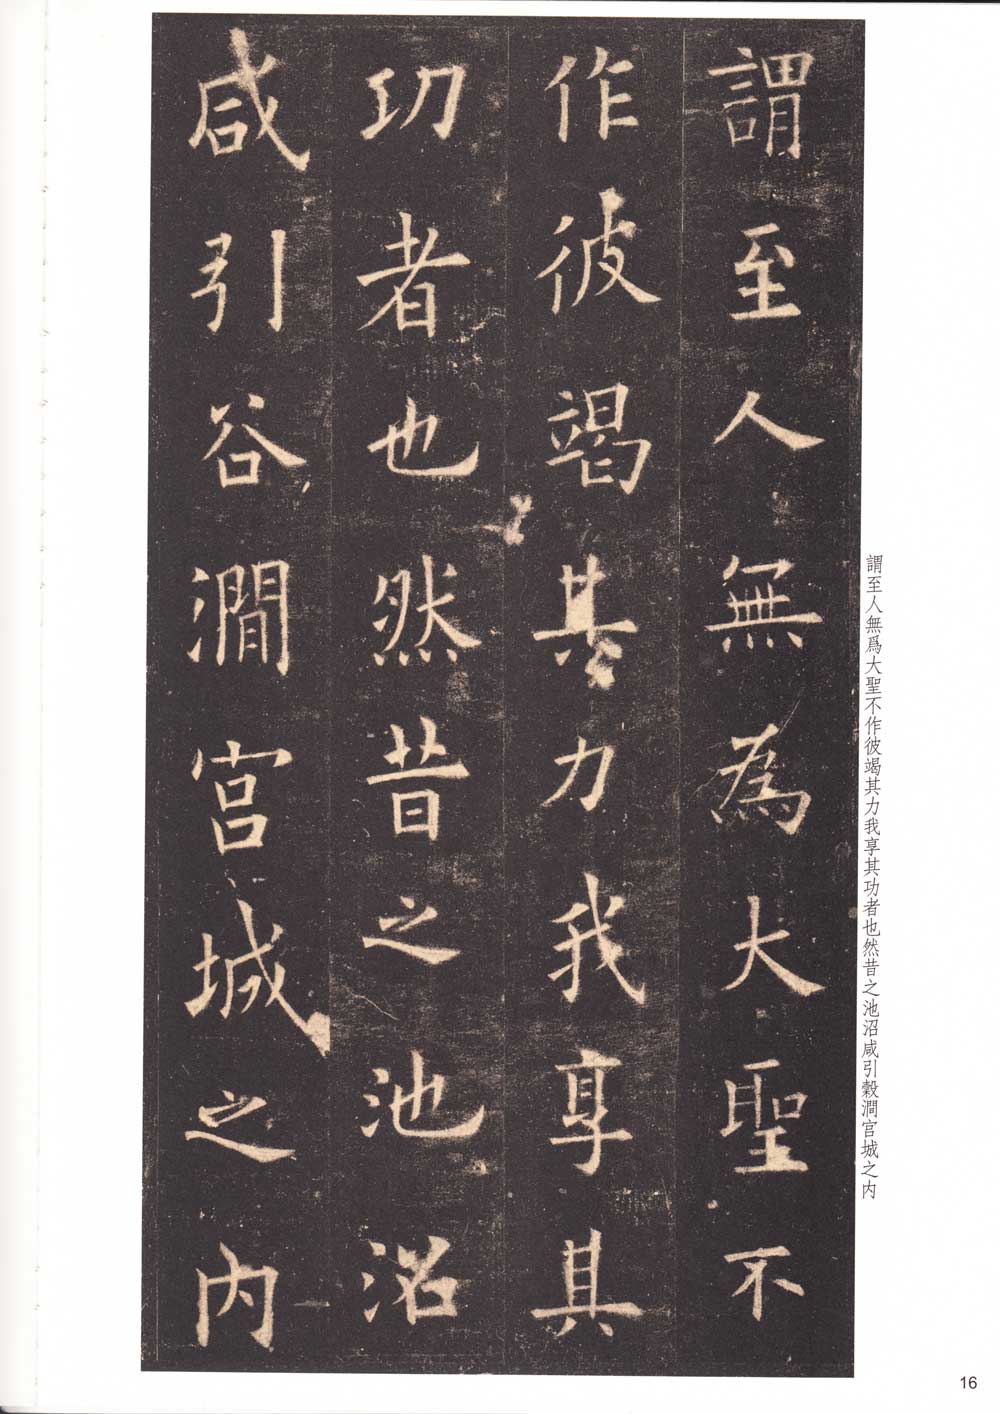 謂至人無為大聖不
作彼竭其力我享其
功者也然昔之池沼
咸引谷澗宫城之内
謂至人無爲大聖不作彼竭其力我享其功者也然昔之池沼咸引穀澗宫城之内
16